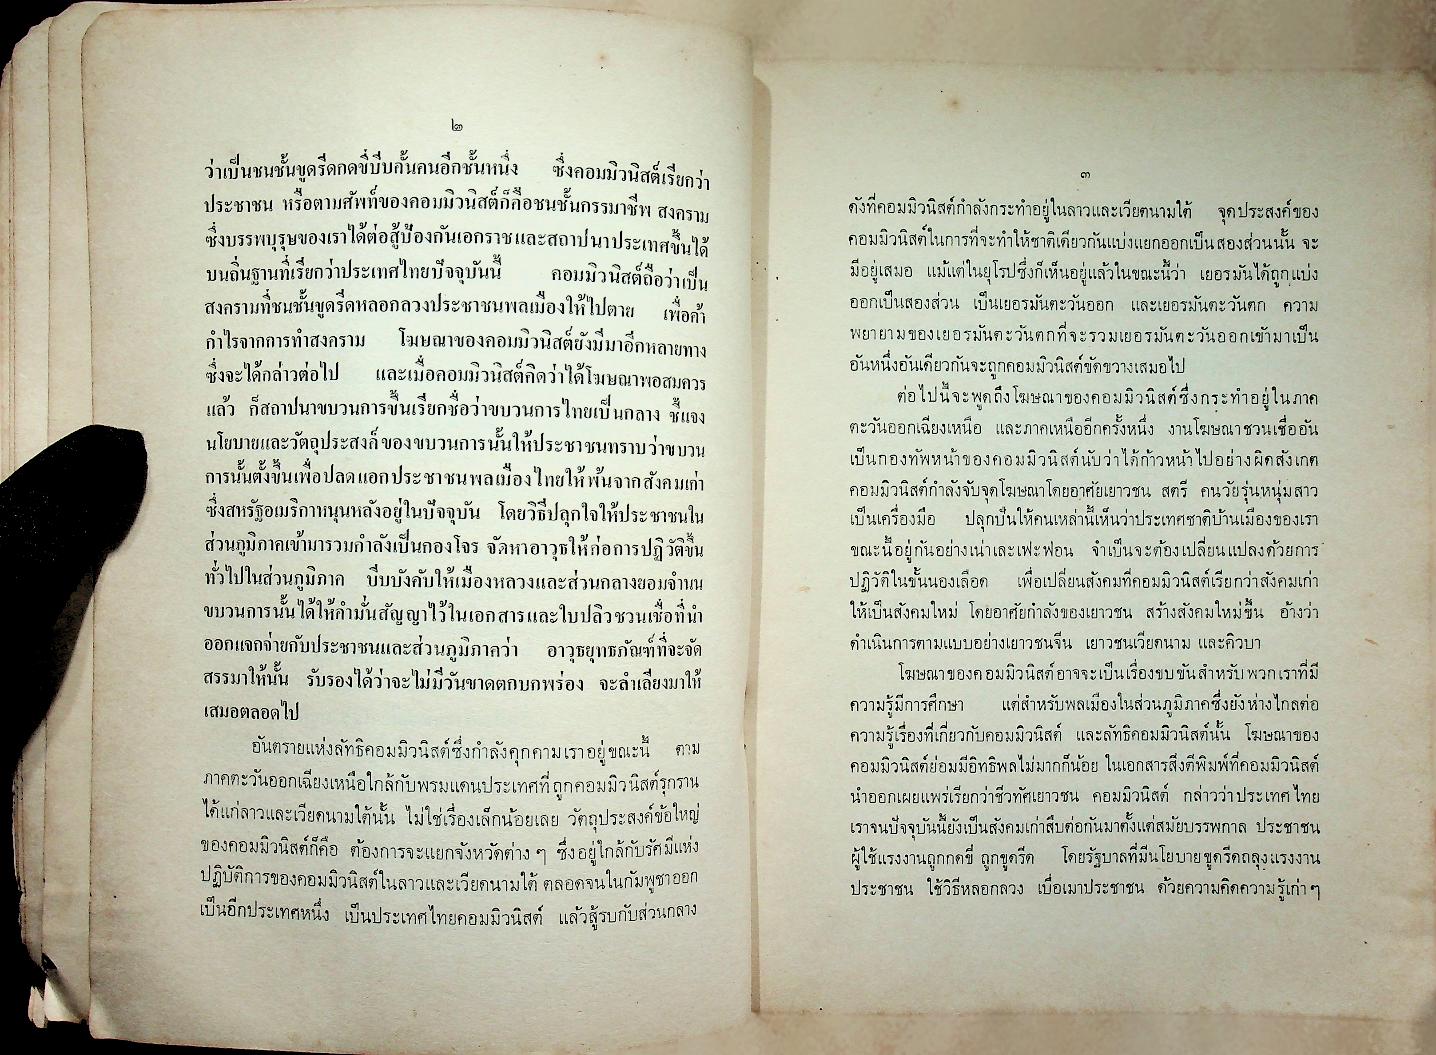 ๒
ว่าเป็นชนชั้นขูดรีดกดขี่บีบคั้นคนอีกชั้นหนึ่ง ซึ่งคอมมิวนิสต์เรียกว่า
ประชาชน หรือตามศัพท์ของคอมมิวนิสต์ก็คือชนชั้นกรรมาชีพ สงคราม
ซึ่งบรรพบุรุษของเราได้ต่อสู้ป้องกันเอกราชและสถาปนาประเทศขึ้นได้
บนถิ่นฐานที่เรียกว่าประเทศไทยปัจจุบันนี้ คอมมิวนิสต์ถือว่าเป็น
สงครามที่ชนชั้นขูดรีดหลอกลวงประชาชนพลเมืองให้ไปตาย เพื่อค้า
กำไรจากการทำสงคราม โฆษณาของคอมมิวนิสต์ยังมีมาอีกหลายทาง
ซึ่งจะได้กล่าวต่อไป และเมื่อคอมมิวนิสต์คิดว่าได้โฆษณาพอสมควร
แล้ว ก็สถาปนาขบวนการขึ้นเรียกชื่อว่าขบวนการไทยเป็นกลาง ชี้แจง
นโยบายและวัตถุประสงค์ของขบวนการนั้นให้ประชาชนทราบว่าขบวน
การนั้นตั้งขึ้นเพื่อปลดแอกประชาชนพลเมืองไทยให้พ้นจากสังคมเก่า
ซึ่งสหรัฐอเมริกาหนุนหลังอยู่ในปัจจุบัน โดยวิธีปลุกใจให้ประชาชนใน
ส่วนภูมิภาคเข้ามารวมกำลังเป็นกองโจร จัดหาอาวุธให้ก่อการปฏิวัติขึ้น
ทั่วไปในส่วนภูมิภาค บีบบังคับให้เมืองหลวงและส่วนกลางยอมจำนน
ขบวนการนั้นได้ให้คำมั่นสัญญาไว้ในเอกสารและใบปลิวชวนเชื่อที่นำ
ออกแจกจ่ายกับประชาชนและส่วนภูมิภาคว่า อาวุธยุทธภัณฑ์ที่จะจัด
สรรมาให้นั้น รับรองได้ว่าจะไม่มีวันขาดตกบกพร่อง จะลำเลียงมาให้
เสมอตลอดไป
อันตรายแห่งลัทธิคอมมิวนิสต์ซึ่งกำลังคุกคามเราอยู่ขณะนี้ ตาม
ภาคตะวันออกเฉียงเหนือใกล้กับพรมแดนประเทศที่ถูกคอมมิวนิสต์รุกราน
ได้แก่ลาวและเวียดนามใต้นั้น ไม่ใช่เรื่องเล็กน้อยเลย วัตถุประสงค์ข้อใหญ่
ของคอมมิวนิสต์ก็คือ ต้องการจะแยกจังหวัดต่าง ๆ ซึ่งอยู่ใกล้กับรัศมีแห่ง
ปฏิบัติการของคอมมิวนิสต์ในลาวและเวียดนามใต้ ตลอดจนในกัมพูชาออก
เป็นอีกประเทศหนึ่ง เป็นประเทศไทยคอมมิวนิสต์ แล้วสู้รบกับส่วนกลาง
๓
ดังที่คอมมิวนิสต์กำลังกระทำอยู่ในลาวและเวียดนามใต้ จุดประสงค์ของ
คอมมิวนิสต์ในการที่จะทำให้ชาติเดียวกันแบ่งแยกออกเป็นสองส่วนนั้น จะ
มีอยู่เสมอ แม้แต่ในยุโรปซึ่งก็เห็นอยู่แล้วในขณะนี้ว่า เยอรมันได้ถูกแบ่ง
ออกเป็นสองส่วน เป็นเยอรมันตะวันออก และเยอรมันตะวันตก ความ
พยายามของเยอรมันตะวันตกที่จะรวมเยอรมันตะวันออกเข้ามาเป็น
อันหนึ่งอันเดียวกันจะถูกคอมมิวนิสต์ขัดขวางเสมอไป
ต่อไปนี้จะพูดถึงโฆษณาของคอมมิวนิสต์ซึ่งกระทำอยู่ในภาค
ตะวันออกเฉียงเหนือ และภาคเหนืออีกครั้งหนึ่ง งานโฆษณาชวนเชื่ออัน
เป็นกองทัพหน้าของคอมมิวนิสต์นับว่าได้ก้าวหน้าไปอย่างผิดสังเกต
คอมมิวนิสต์กำลังจับจุดโฆษณาโดยอาศัยเยาวชน สตรี คนวัยรุ่นหนุ่มสาว
เป็นเครื่องมือ ปลุกปั่นให้คนเหล่านี้เห็นว่าประเทศชาติบ้านเมืองของเรา
ขณะนี้อยู่กันอย่างเน่าเละเฟะฟอน จำเป็นจะต้องเปลี่ยนแปลงด้วยการ
ปฏิวัติในขั้นนองเลือด เพื่อเปลี่ยนสังคมที่คอมมิวนิสต์เรียกว่าสังคมเก่า
ให้เป็นสังคมใหม่ โดยอาศัยกำลังของเยาวชน สร้างสังคมใหม่ขึ้น อ้างว่า
ดำเนินการตามแบบอย่างเยาวชนจีน เยาวชนเวียดนาม และคิวบา
โฆษณาของคอมมิวนิสต์อาจจะเป็นเรื่องขบขันสำหรับพวกเราที่มี
ความรู้มีการศึกษา แต่สำหรับพลเมืองในส่วนภูมิภาคซึ่งยังห่างไกลต่อ
ความรู้เรื่องที่เกี่ยวกับคอมมิวนิสต์ และลัทธิคอมมิวนิสต์นั้น โฆษณาของ
คอมมิวนิสต์ย่อมมีอิทธิพลไม่มากก็น้อย ในเอกสารสิ่งตีพิมพ์ที่คอมมิวนิสต์
นำออกเผยแพร่เรียกว่าชีวทัศเยาวชน คอมมิวนิสต์ กล่าวว่าประเทศไทย
เราจนปัจจุบันนี้ยังเป็นสังคมเก่าสืบต่อกันมาตั้งแต่สมัยบรรพกาล ประชาชน
ผู้ใช้แรงงานถูกกดขี่ ถูกขูดรีด โดยรัฐบาลที่มีนโยบายขูดรีดถลุงแรงงาน
ประชาชน ใช้วิธีหลอกลวง เบื่อเมาประชาชน ด้วยความคิดความรู้เก่า ๆ